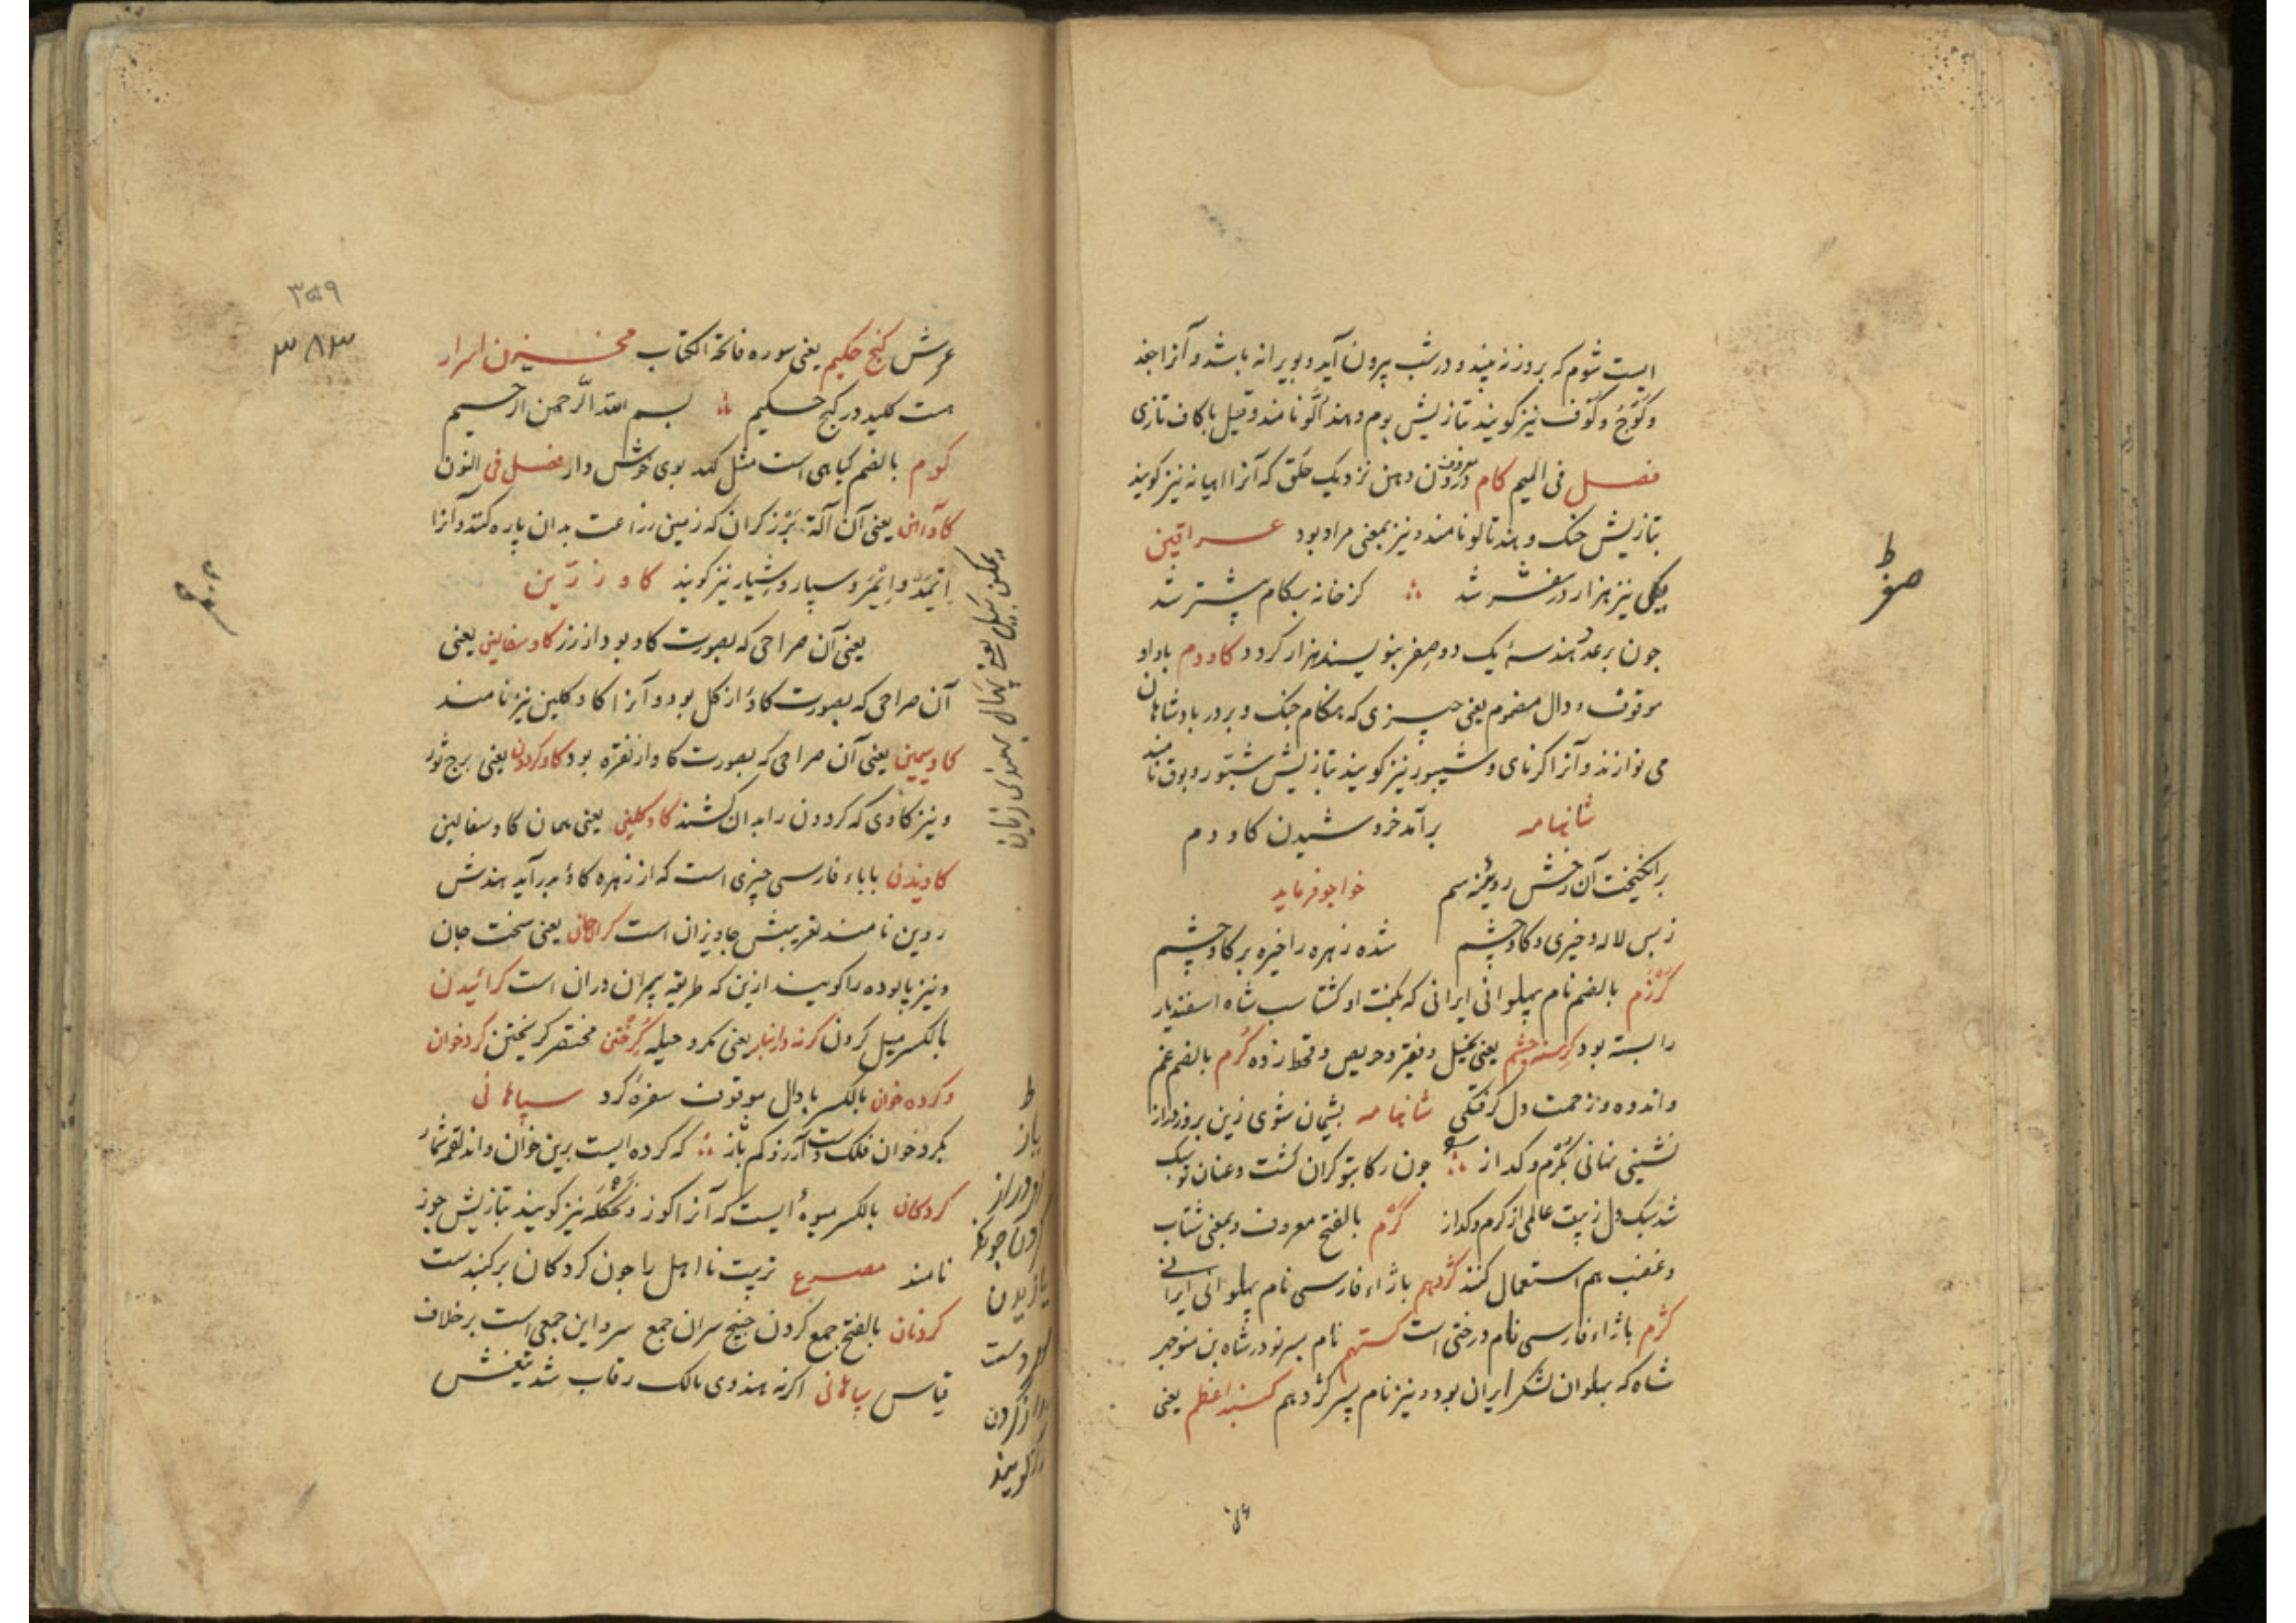 ایست شوم که بروز نه بیند و در شب بیرون آید و بویرانه باشد و آنرا جغد
و کوج و کوف نیز کویند بتازیش بوم و هند الّو نامند و قیل با کاف تازی
فصل فی المیم کام معروف درون دهن نزدیک حلق که آنرا نیز کویند
بتازیش حنک و هند تالو نامند و نیز بمعنی مراد بود عراقین
یکی نیز هزار در شد کز خانه بکام پیشتر شد
جون بر عدد هندسهٔ یک دو صفر بنویسند هزار کردد کاودم با واو
موقوف و دال مضموم یعنی چیزی که هنکام جنک و بر در بادشاهان
می نوازند و آنرا کرنای و شیپور نیز کویند بتازیش شبّور و بوق نامند
شانهامه برآمد خروشیدن کاودم
برانکیخت آن رخش روئینه سم خواجو فرماید
ز بس لاله و خیری و کاوچشم شده زهره را خیره بر کاوچشم
کرزم بالضم نام پهلوانی ایرانی که بکفت او کشتاسب شاه اسفندیار
را بسته بود کرسنه چشم یعنی بخیل و فقیر و حریص و قحط زده کرم بالضم غم
و اندوه و زحمت دل کرفتکی شانهامه پشیمان شوی زین بروز دراز
نشینی نهانی بکرم و کداز جون رکاب تو کران کشت و عنان تو سبک
شد سبک دل ز پیت عالمی از کرم و کداز کرم بالفتح معروف و بمعنی شتاب
و غضب هم استعمال کنند کژدهم با زاء فارسی نام پهلوانی ایرانی
کژم با زاء فارسی نام درختی است کستهم نام پسر نوذر شاه بن منوجهر
شاه که پهلوان لشکر ایران بود و نیز نام پسر کژدهم کنبد اعظم یعنی
صفر ط
۳۵۹
۳۸۳
عرش کنج حکیم یعنی سوره فاتحة الکتاب مخزن اسرار
هست کلید در کنج حکیم بسم الله الرّحمن الرحیم
کوم بالضم کیاهی است مثل بوی خوش دارد فصل فی النون
کاوآهن یعنی آن آلة برزکران که زمین زراعت بدان پاره کنند و آنرا
و سپار و شیار نیز کویند کاو زرّین
یعنی آن صراحی که بصورت کاو بود از زر کاو سفالین یعنی
آن صراحی که بصورت کاو از کل بود و آنرا کاو کلین نیز نامند
کاو سیمین یعنی آن صراحی که بصورت کاو از نقره بود کاو کردون یعنی برج ثور
و نیز کاوی که کردون را بدان کشند کاو کلین یعنی همان کاو سفالین
با باء فارسی چیزی است که از زهره کاو برآید هندش
نامند تعریبش جاویزان است کرانجانی یعنی سخت جان
و نیز را کویند ازین که طریقه پیران دران است کرائیدن
بالکسر میل کردن یعنی مکر و حیله کرختن مختصر کریختن کردخوان
و کرده خوان بالکسر با دال موقوف سفرهٔ کرد سپاهانی
بکرد خوان فلک دست آرزو کم یاز که کرده ایست برین خوان و اند لقمه شمار
کردکان بالکسر میوهٔ ایست که آنرا کوز و نیز کویند بتازیش جوز
نامند مصرع تربیت نا اهل را جون کردکان بر کنبدست
کردنان بالفتح جمع کردن سران جمع سر و این جمعی است بر خلاف
قیاس سپاهانی اکرنه هندوی مالک رقاب شد تیغش
ط
یاز